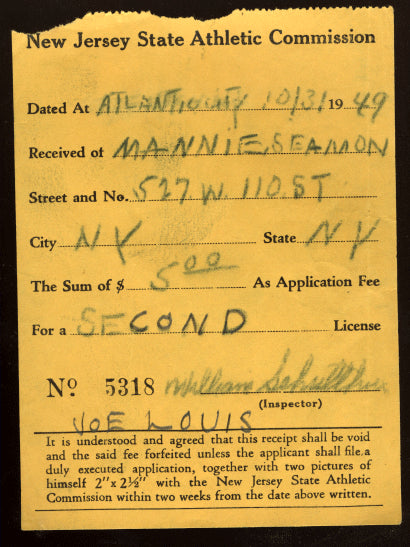 New Jersey State Athletic Commission
Dated At ATLANTIC CITY 10/31 1949
Received of MANNIE SEAMON
Street and No. 527 W. 110. ST
City NY State NY
The Sum of $ 5.00 As Application Fee
For a SECOND License
No. 5318 William
(Inspector)
JOE LOUIS
It is understood and agreed that this receipt shall be void
and the said fee forfeited unless the applicant shall file a
duly executed application, together with two pictures of
himself 2"x 2½" with the New Jersey State Athletic
Commission within two weeks from the date above written.